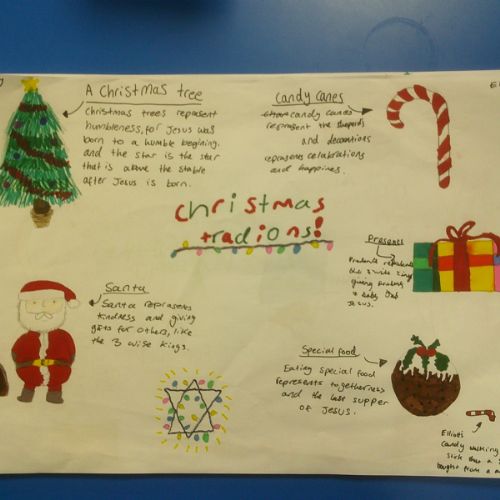 A Christmas tree
Christmas trees represent
humbleness, for Jesus was
born to a humble begining.
and the star is the star
that is above the stable
after Jesus is born.
Candy Canes
candy canes
represent the sheperds
and decorations
represents celebrations
and happines.
christmas
tradions!
Presents
giving
Jesus.
Santa
Santa represents
kindness and giving
gifts for others, like
the 3 wise kings.
Special food
Eating special food
represents togetherness
and the last supper
of Jesus.
Elliott
Candy walking
stick that a
bought from a